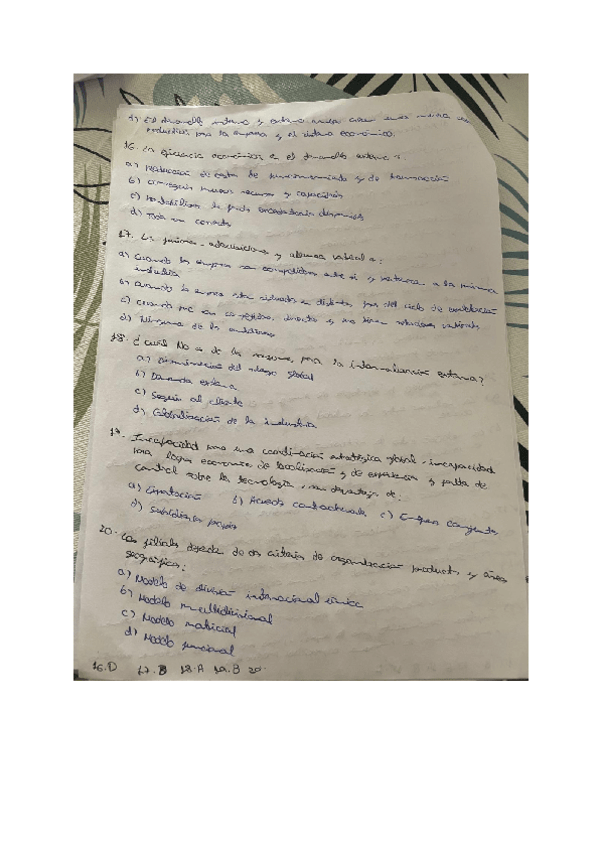 d) El desarrollo interno y externo nunca crea una mejora
productiva para la empresa y el sistema económico.
16. La eficiencia económica en el desarrollo externo
a) Reducción de costes de funcionamiento y de transacción
b) Conseguir nuevos recursos y capacidades
c)
d)
17. La fusiones, adquisiciones y alianza vertical
a) Cuando las empresas son competidoras entre sí y pertenecen a la misma
industria
b) cuando la empresa esta situada en distinta fase del ciclo de explotación
c) cuando
d) Ninguna de las anteriores
18. ¿Cual No es de las razones para la internalización externa?
a) Disminución del riesgo global
b) Demanda externa
c) Seguir al cliente
d) Globalización de la industria
19. Incapacidad para una coordinación estratégica global, incapacidad
para lograr economías de localización y de experiencia y falta de
control sobre la tecnología, son desventaja de:
a) Exportación b) Acuerdo contractuales c) Empresa conjunta
d) Subsidiaria propia
20. Las filiales depende de dos criterios de organización producto y áreas
geográficas:
a) Modelo de división internacional única
b) Modelo multidivisional
c) Modelo matricial
d) Modelo funcional
16.D 17.B 18.A 19.B 20.